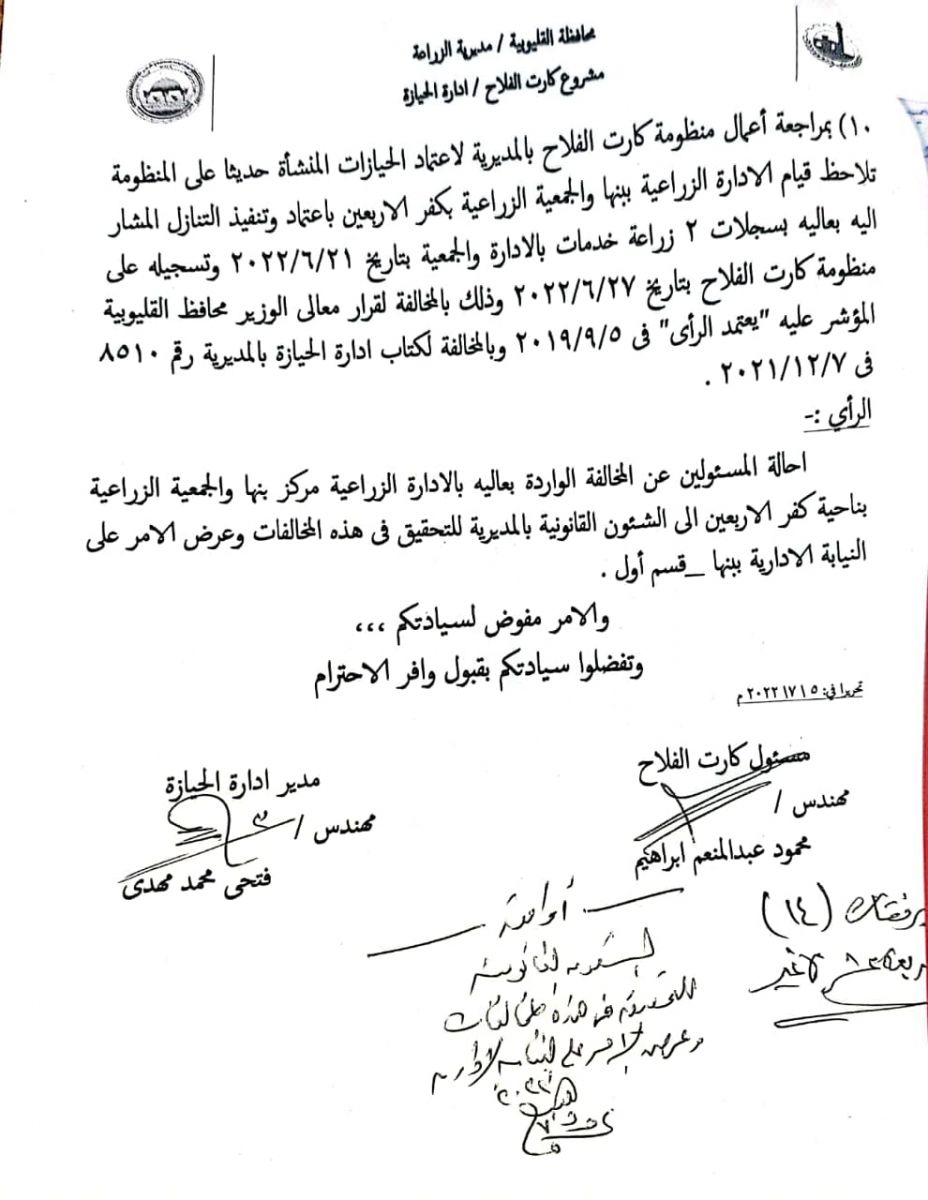 محافظة القليوبية / مديرية الزراعة
مشروع كارت الفلاح / ادارة الحيازة
١٠) بمراجعة أعمال منظومة كارت الفلاح بالمديرية لاعتماد الحيازات المنشأة حديثا على المنظومة
تلاحظ قيام الادارة الزراعية ببنها والجمعية الزراعية بكفر الاربعين باعتماد وتنفيذ التنازل المشار
اليه بعاليه بسجلات ٢ زراعة خدمات بالادارة والجمعية بتاريخ ٢٠٢٢/٦/٢١ وتسجيله على
منظومة كارت الفلاح بتاريخ ٢٠٢٢/٦/٢٧ وذلك بالمخالفة لقرار معالى الوزير محافظ القليوبية
المؤشر عليه "يعتمد الرأى" فى ٢٠١٩/٩/٥ وبالمخالفة لكتاب ادارة الحيازة بالمديرية رقم ٨٥١٠
فى ٢٠٢١/١٢/٧ .
الرأي :-
احالة المسئولين عن المخالفة الواردة بعاليه بالادارة الزراعية مركز بنها والجمعية الزراعية
بناحية كفر الاربعين الى الشئون القانونية بالمديرية للتحقيق فى هذه المخالفات وعرض الامر على
النيابة الادارية ببنها _ قسم أول .
والامر مفوض لسيادتكم ،،،
وتفضلوا سيادتكم بقبول وافر الاحترام
تحريرا في: ٢٠٢٢/٧/٥ م
مسئول كارت الفلاح
مهندس /
محمود عبدالمنعم ابراهيم
مدير ادارة الحيازة
مهندس /
فتحى محمد مهدى
(١٤)
لا غير
أوافق
الشئون القانونية
للتحقيق فى هذه المخالفات
وعرض الامر على النيابة الادارية